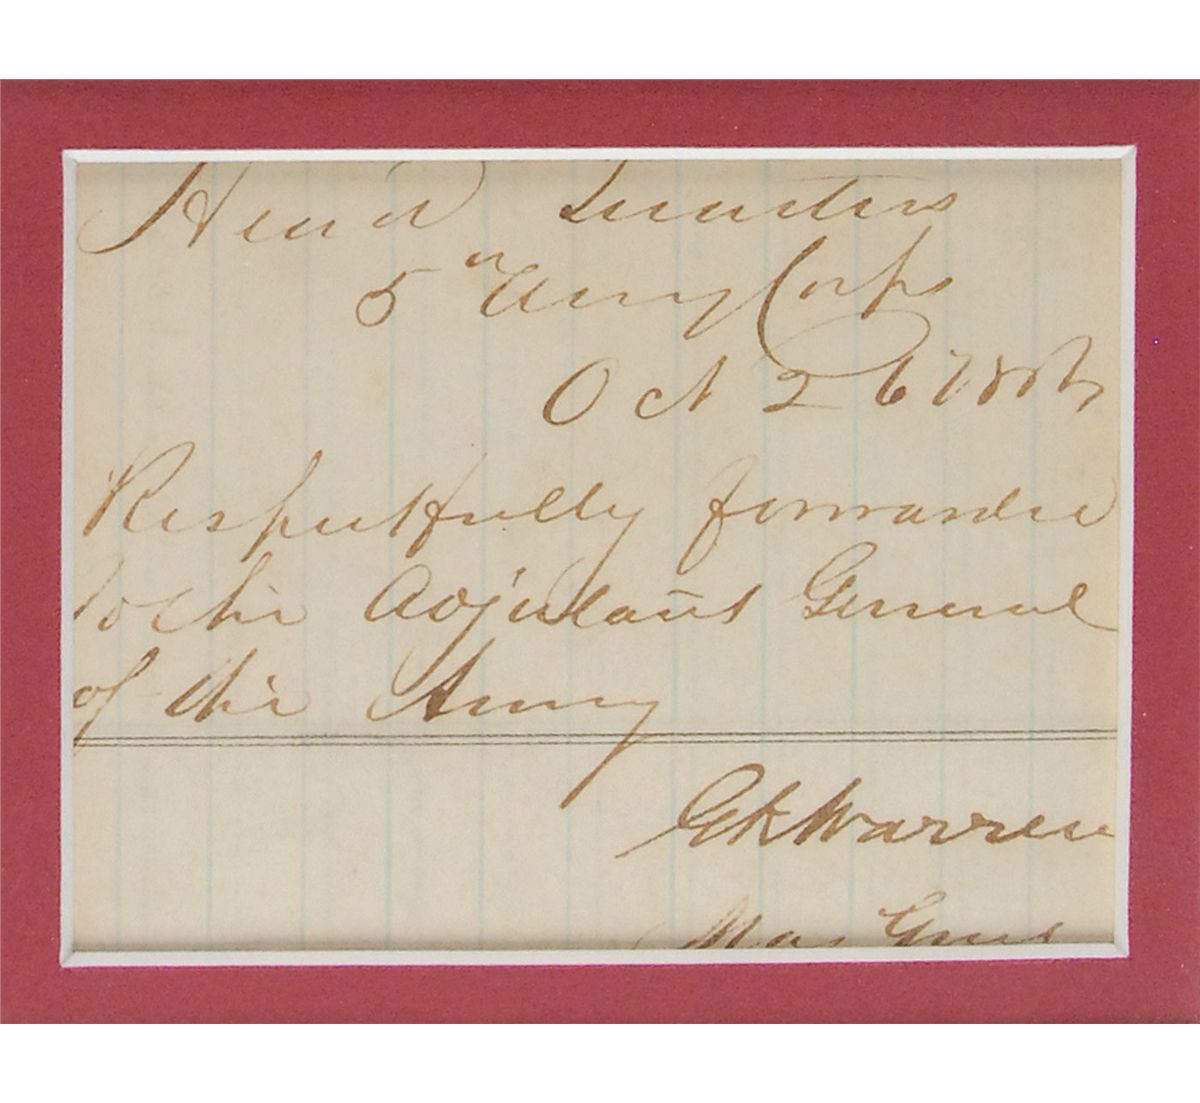 Head Quarters
5th Army Corps
Oct 26 / 1864
Respectfully forwarded
to the Adjutant General
of the Army
GK Warren
Maj Genl